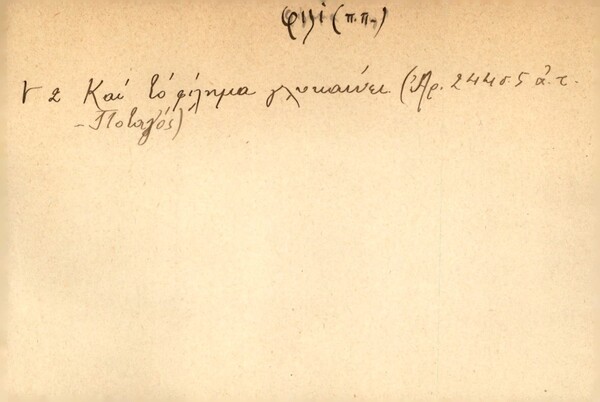 φιλί (π.π.)
2 Καί τό φίλημα γλυκαίνει (Ἀρ. 244 σ 5 ἀ. τ.
- Ποταγός)